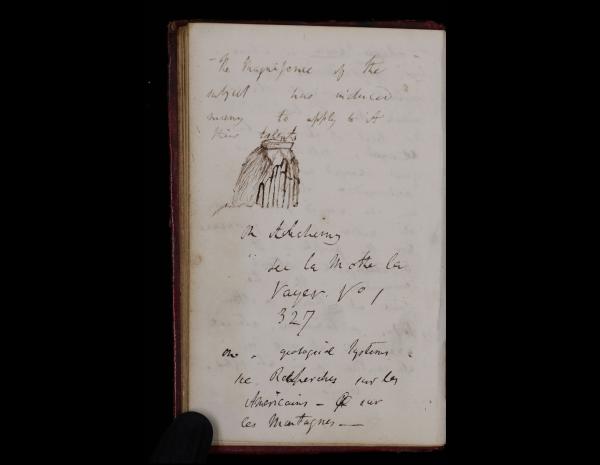 The Magnificence of the
subject has induced
many to apply to it
their talents
on Alchemy
see la Mothe la
Vayer. Vo 1
327
on geological Systems
see Recherches sur les
Américains - & sur
les Montagnes —